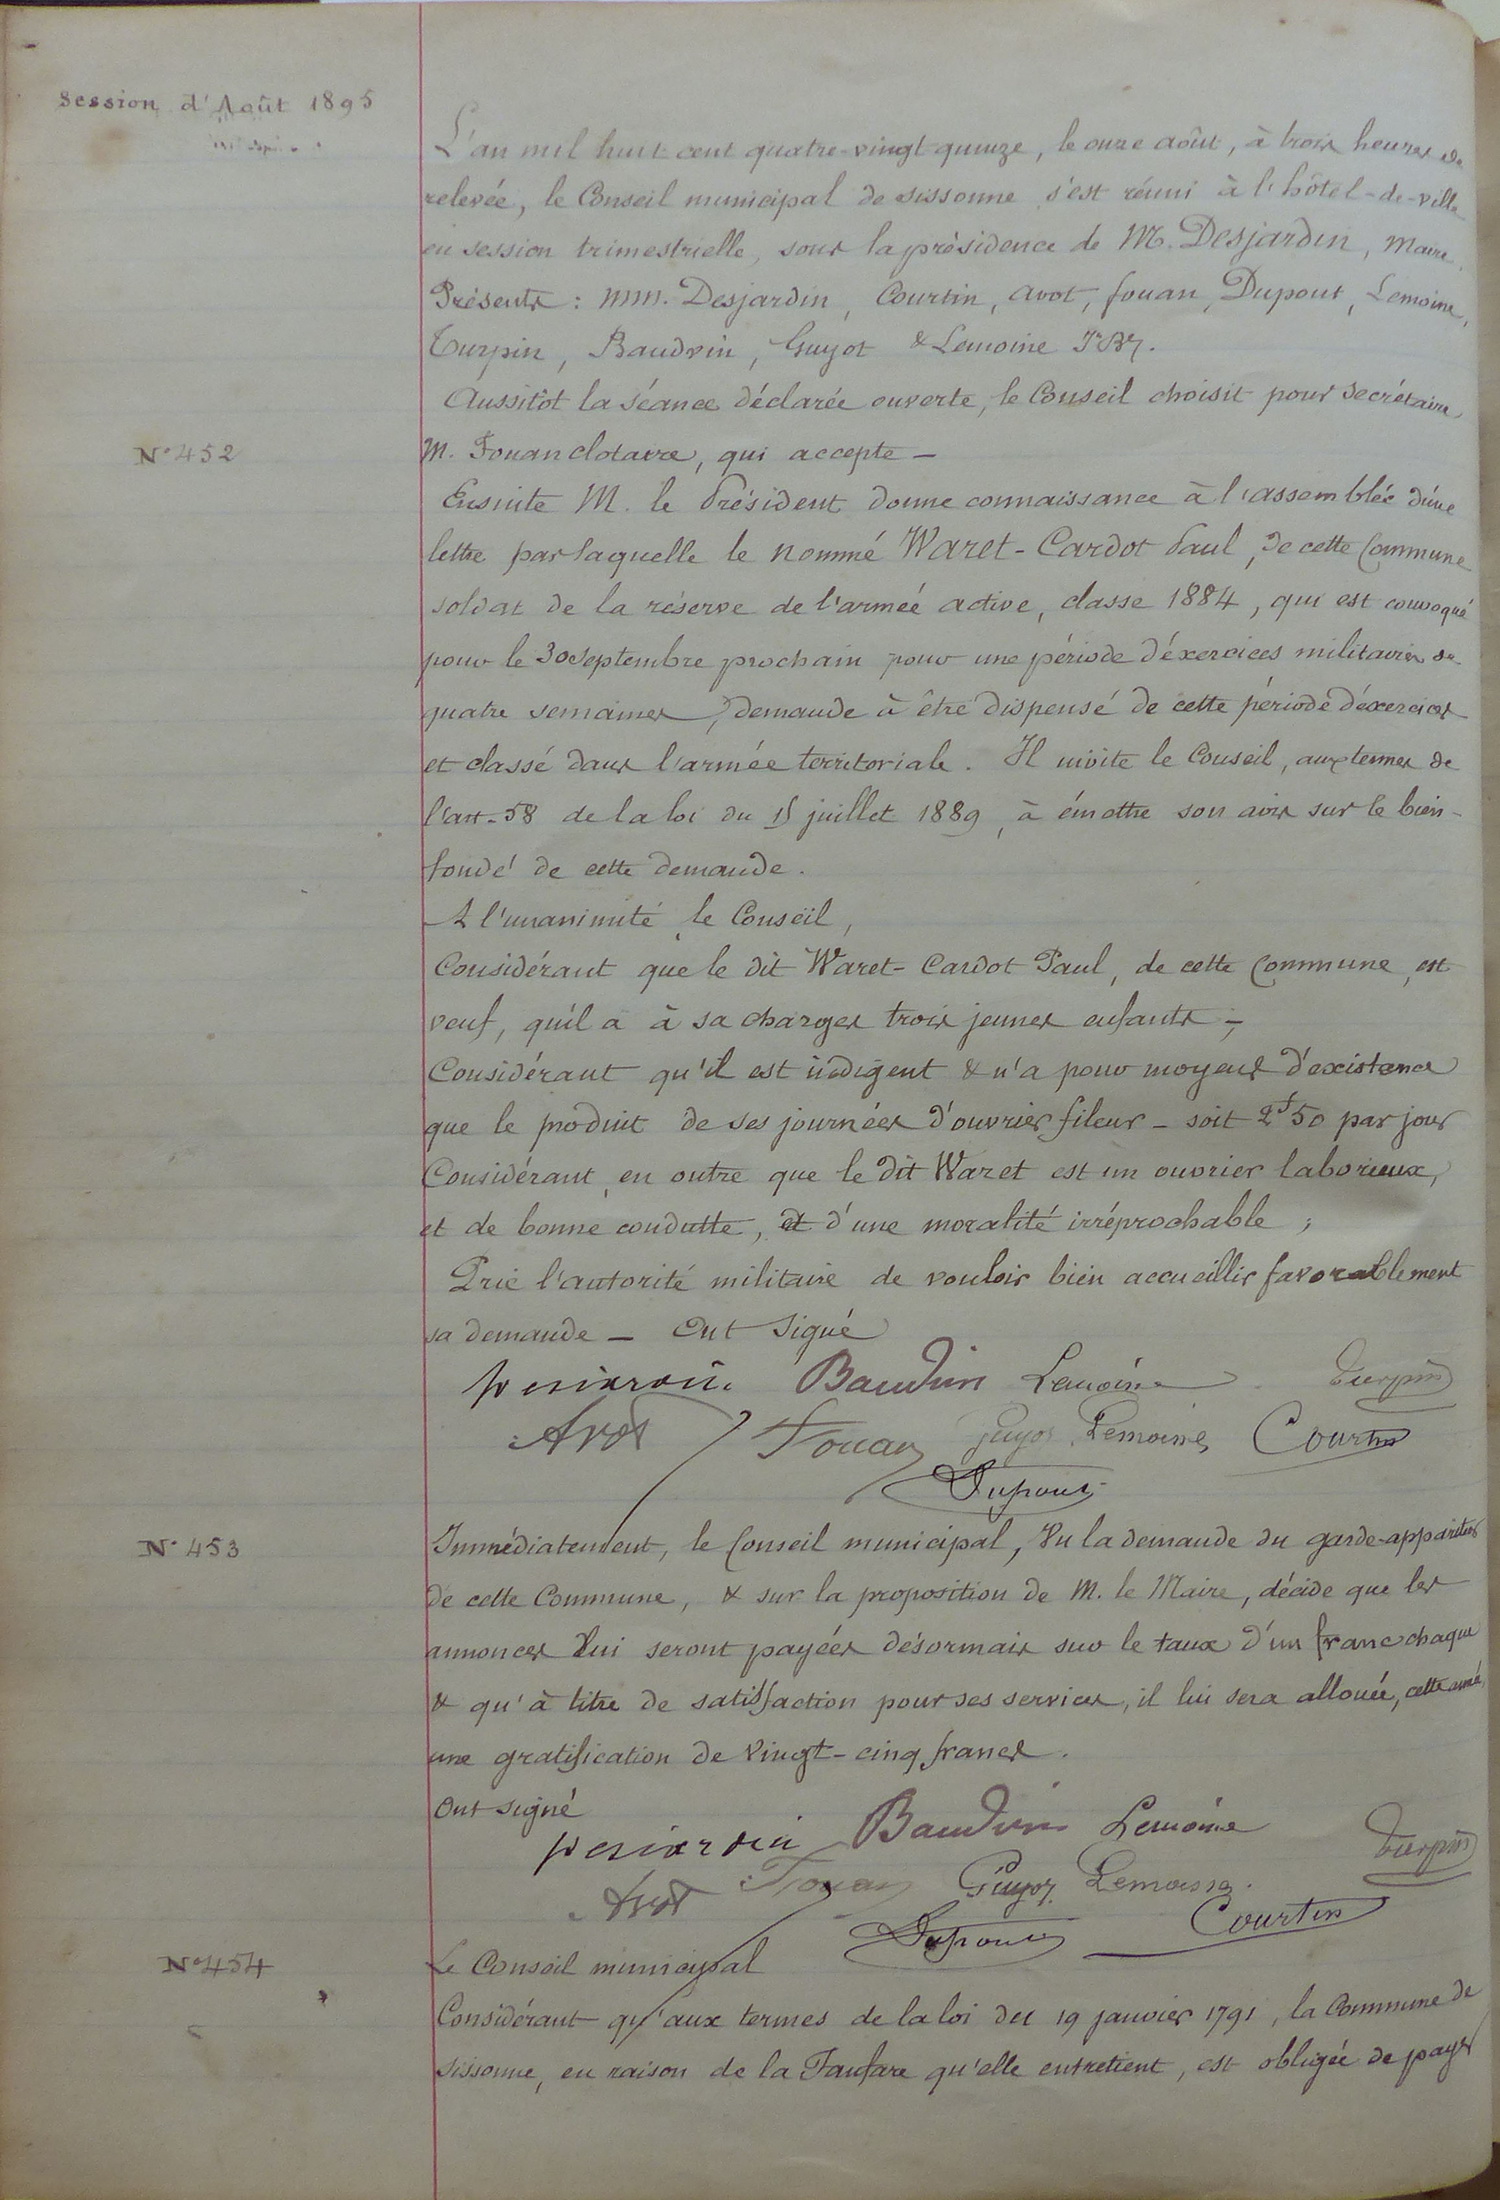 Session d'Août 1895
L'an mil huit cent quatre-vingt quinze, le onze août, à trois heures de
relevée, le Conseil municipal de Sissonne s'est réuni à l'hôtel-de-ville
en session trimestrielle, sous la présidence de M. Desjardin, Maire.
Présents : MM. Desjardin, Courtin, Avot, Fouan, Dupont, Lemoine,
Turpin, Baudoin, Guyot & Lemoine
Aussitôt la séance déclarée ouverte, le Conseil choisit pour secrétaire
N° 452
M. Fouan Clotaire, qui accepte —
Ensuite M. le Président donne connaissance à l'assemblée d'une
lettre par laquelle le nommé Waret-Cardot Paul, de cette Commune
soldat de la réserve de l'armée active, classe 1884, qui est convoqué
pour le 30 septembre prochain pour une période d'éxercices militaires de
quatre semaines, demande à être dispensé de cette période d'éxercices
et classé dans l'armée territoriale. Il invite le Conseil, aux termes de
l'art-58 de la loi du 15 juillet 1889, à émettre son avis sur le bien-
fondé de cette demande.
A l'unanimité, le Conseil,
Considérant que le dit Waret-Cardot Paul, de cette Commune, est
veuf, qu'il a à sa charges trois jeunes enfants ;
Considérant qu'il est indigent & n'a pour moyens d'existence
que le produit de ses journées d'ouvrier fileur - soit 2f50 par jour
Considérant, en outre que le dit Waret est un ouvrier laborieux,
et de bonne conduitte, et d'une moralité irréprochable ;
Prie l'autorité militaire de vouloir bien accueillir favorablement
sa demande — Ont signé
Desjardin Baudoin Lemoine Turpin
Avot Fouan Guyot Lemoine Courtin
Dupont
N° 453
Immédiatement, le Conseil municipal, Vu la demande du garde-appariteur
de cette Commune, & sur la proposition de M. le Maire, décide que les
annonces lui seront payées désormais sur le taux d'un franc chaque
& qu'à titre de satisfaction pour ses services, il lui sera allouée, cette année,
une gratification de vingt-cinq francs.
Ont signé
Desjardin Baudoin Lemoine Turpin
Avot Fouan Guyot Lemoine
Dupont Courtin
N° 454
Le Conseil municipal
Considérant qu'aux termes de la loi du 19 janvier 1791, la Commune de
Sissonne, en raison de la Fanfare qu'elle entretient, est obligée de payer